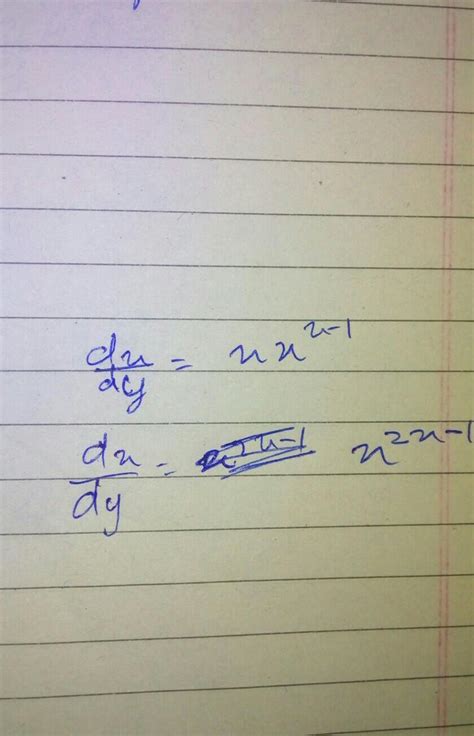 dx/dy = x x^{x-1}
dx/dy = x^{2x-1}